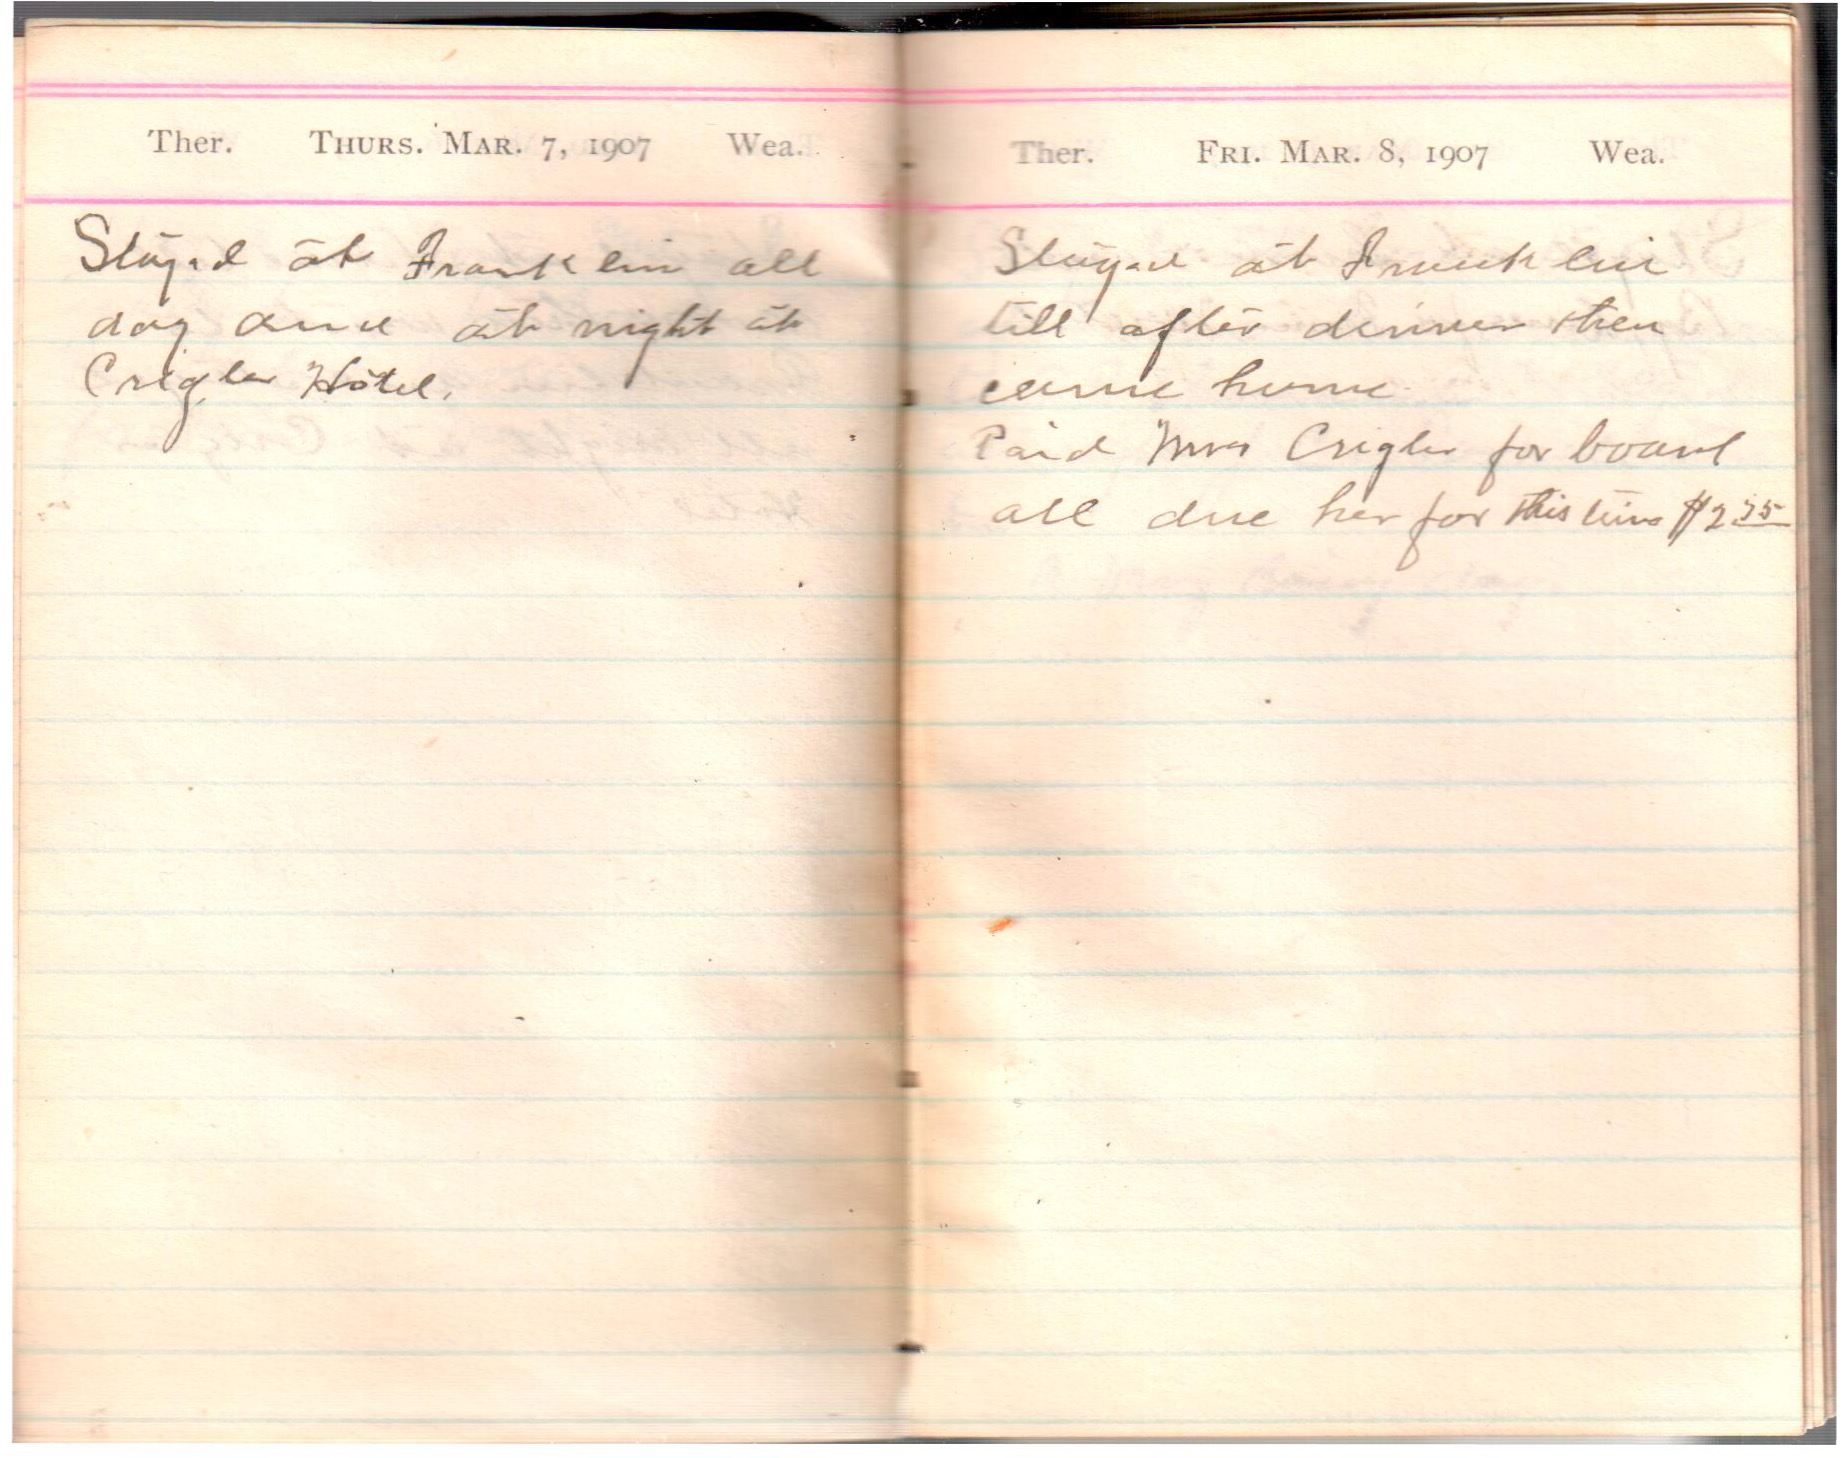 Ther. THURS. MAR. 7, 1907 Wea.
Stayed at Franklin all
day and at night at
Crigler Hotel.
Ther. FRI. MAR. 8, 1907 Wea.
Stayed at Franklin
till after dinner then
came home
Paid Mrs Crigler for board
all due her for this time $2 75